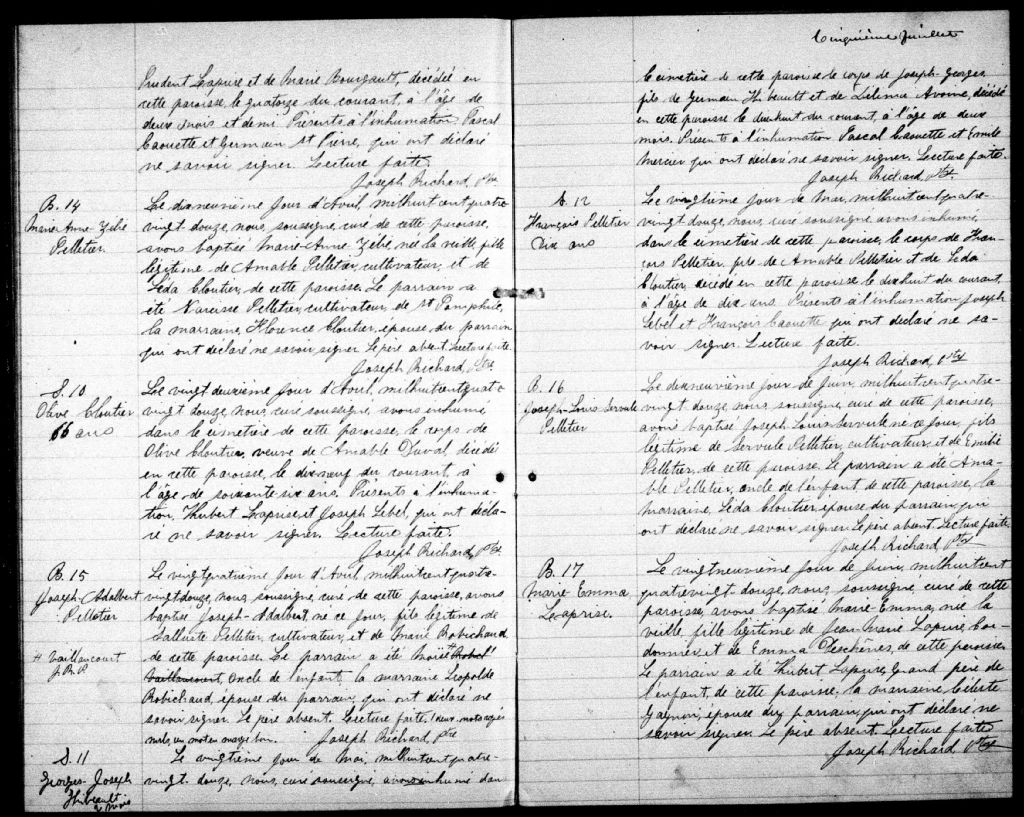 Prudent Laprise et de Marie Bourgault, décédé en
cette paroisse, le quatorze du courant, à l'âge de
deux mois et demi. Présents à l'inhumation, Pascal
Caouette et Germain St Pierre, qui ont déclaré
ne savoir signer. Lecture faite.
Joseph Richard, Ptre
B. 14
Marie-Anne-Zélie
Pelletier
Le dixneuvième jour d'Avril, milhuitcentquatre-
vingt douze, nous, soussigné, curé de cette paroisse,
avons baptisé Marie-Anne Zélie, née la veille, fille
légitime de Amable Pelletier, cultivateur, et de
Léda Cloutier, de cette paroisse. Le parrain a
été Narcisse Pelletier, cultivateur, de St Pamphile,
la marraine, Florence Cloutier, épouse du parrain
qui ont déclaré ne savoir signer. Le père absent. Lecture faite.
Joseph Richard, Ptre
S. 10
Olive Cloutier
66 ans
Le vingt deuxième jour d'Avril, milhuitcentquatre
vingt douze, nous, curé soussigné, avons inhumé
dans le cimetière de cette paroisse, le corps de
Olive Cloutier, veuve de Amable Duval, décédé
en cette paroisse, le dixneuf du courant, à
l'âge de soixante six ans. Présents à l'inhuma-
tion, Hubert Laprise et Joseph Lebel, qui ont décla-
ré ne savoir signer. Lecture faite.
Joseph Richard, Ptre
B. 15
Joseph-Adalbert
Pelletier
Le vingtquatrième jour d'Avril milhuitcent quatre-
vingtdouze, nous, soussigné, curé de cette paroisse, avons
baptisé Joseph-Adalbert, né ce jour, fils légitime de
Salluste Pelletier, cultivateur, et de Marie Robichaud
de cette paroisse. Le parrain a été Moïse
Vaillancourt, oncle de l'enfant, la marraine Léopolde
Robichaud, épouse du parrain, qui ont déclaré ne
savoir signer. Le père absent. Lecture faite. Deux mots rayés
nuls, un mot en marge bon. Joseph Richard, Ptre
# Vaillancourt
J. R. P.
S. 11
Georges-Joseph
Thibeault
2 mois
Le vingtième jour de Mai, milhuitcentquatre-
vingt-douze, nous, curé soussigné, avons inhumé dans
Cinquième Juillet
Cimetière de cette paroisse le corps de Joseph-Georges,
fils de Germain Thibeault et de Délima Avoine, décédé
en cette paroisse le dixhuit du courant, à l'âge de deux
mois. Présents à l'inhumation Pascal Caouette et Emile
Mercier qui ont déclaré ne savoir signer. Lecture faite.
Joseph Richard, Ptre
S. 12
François Pelletier
Dix ans
Le vingtième jour de Mai, milhuitcent quatre-
vingt douze, nous, curé soussigné avons inhumé,
dans le cimetière de cette paroisse, le corps de Fran-
çois Pelletier, fils de Amable Pelletier et de Léda
Cloutier, décédé en cette paroisse le dixhuit du courant,
à l'âge de dix ans. Présents à l'inhumation Joseph
Lebel et François Caouette qui ont déclaré ne sa-
voir signer. Lecture faite.
Joseph Richard, Ptre
B. 16
Joseph-Louis Servule
Pelletier
Le dixneuvième jour de Juin, milhuitcent quatre-
vingt douze, nous, soussigné, curé de cette paroisse,
avons baptisé Joseph Louis Servule né ce jour, fils
légitime de Servule Pelletier, cultivateur, et de Emilie
Pelletier, de cette paroisse. Le parrain a été Ama-
ble Pelletier, oncle de l'enfant, de cette paroisse, la
marraine, Léda Cloutier épouse du parrain, qui
ont déclaré ne savoir signer. Le père absent. Lecture faite.
Joseph Richard, Ptre
B. 17
Marie Emma
Laprise.
Le vingtneuvième jour de Juin, milhuitcent
quatrevingt douze, nous, soussigné, curé de cette
paroisse, avons baptisé Marie-Emma, née la
veille, fille légitime de Jean Marie Laprise, Cor-
donnier et de Emma Deschênes, de cette paroisse.
Le parrain a été Hubert Laprise, Grand père de
l'enfant, de cette paroisse, la marraine, Céleste
Gagnon, épouse du parrain, qui ont déclaré ne
savoir signer. Le père absent. Lecture faite.
Joseph Richard Ptre